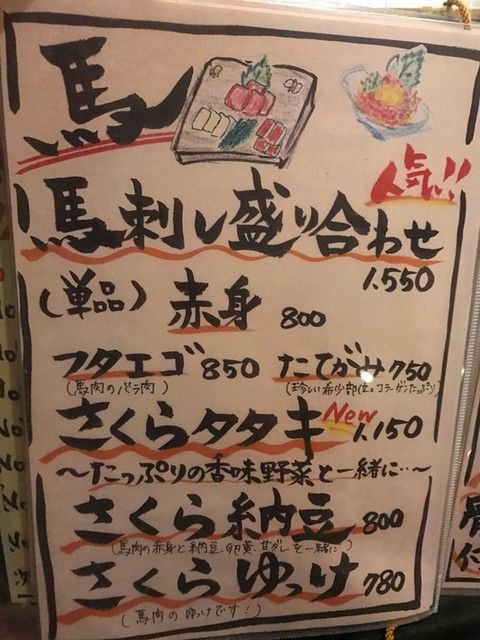 馬
人気!!
馬刺し盛り合わせ
1,550
(単品) 赤身 800
フタエゴ 850 たてがみ 750
(馬肉のバラ肉) (珍しい希少部位。コラーゲンたっぷり)
さくらタタキ New 1,150
〜たっぷりの香味野菜と一緒に…〜
さくら納豆 800
(馬肉の赤身と納豆、卵黄、甘ダレを一緒に)
さくらゆっけ 780
(馬肉のゆっけです!)
付